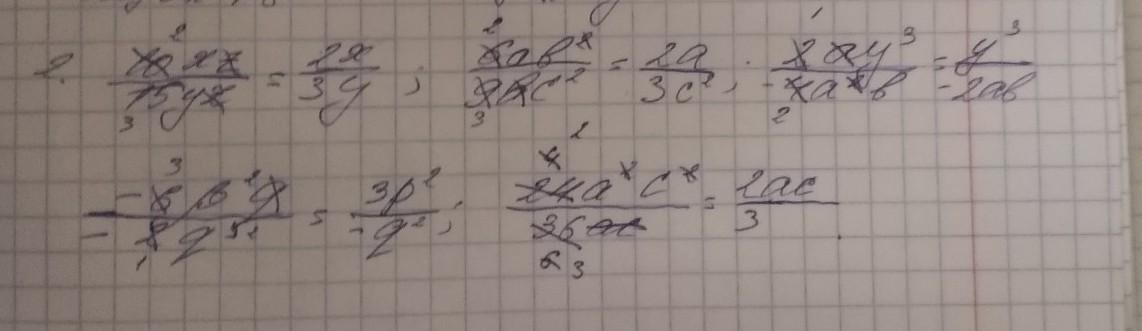 2. 10xz/15yz = 2x/3y ; 6ab²/9bc² = 2a/3c² ; 2ay³/-4a²b = y³/-2ab
-6p²q/-2q³ = 3p²/-q² ; 24a²c²/36ac = 2ac/3 .